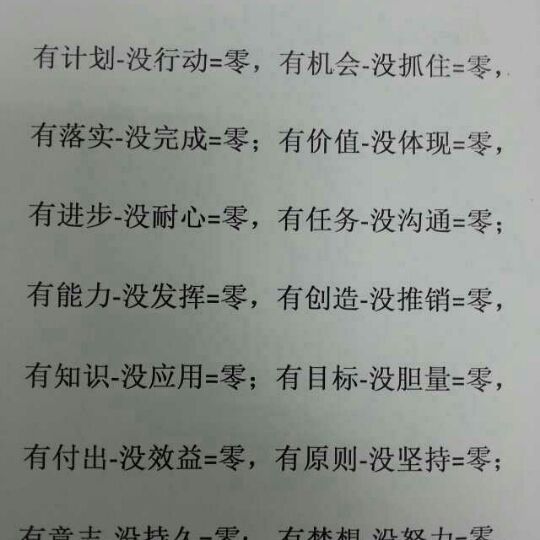 有计划-没行动=零，有机会-没抓住=零，
有落实-没完成=零；有价值-没体现=零，
有进步-没耐心=零，有任务-没沟通=零；
有能力-没发挥=零，有创造-没推销=零，
有知识-没应用=零；有目标-没胆量=零，
有付出-没效益=零，有原则-没坚持=零；
有意志-没持久=零；有梦想-没努力=零